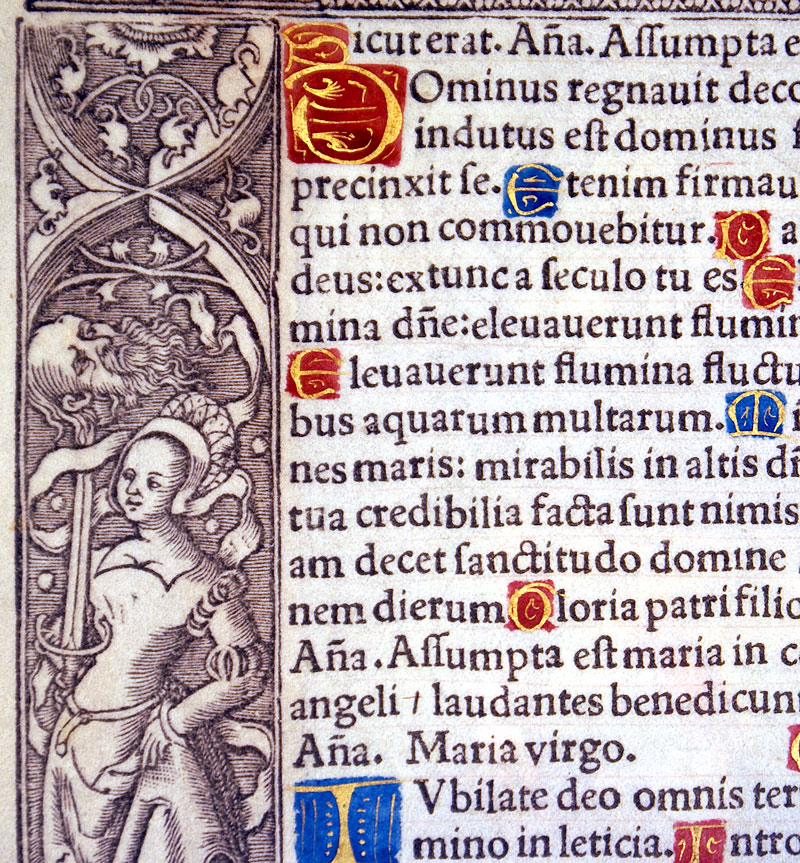 Sicut erat. Aña. Aſſumpta e
DOminus regnauit deco
indutus eſt dominus f
precinxit ſe. Etenim firmau
qui non commouebitur. P a
deus: ex tunc a ſeculo tu es E
mina dñe: eleuauerunt flumin
Eleuauerunt flumina fluctu
bus aquarum multarum. M i
nes maris: mirabilis in altis dñ
tua credibilia facta ſunt nimis
am decet ſanctitudo domine
nem dierum Gloria patri filio
Aña. Aſſumpta eſt maria in c
angeli ⁊ laudantes benedicunt
Aña. Maria virgo.
IVbilate deo omnis ter
mino in leticia. Intro